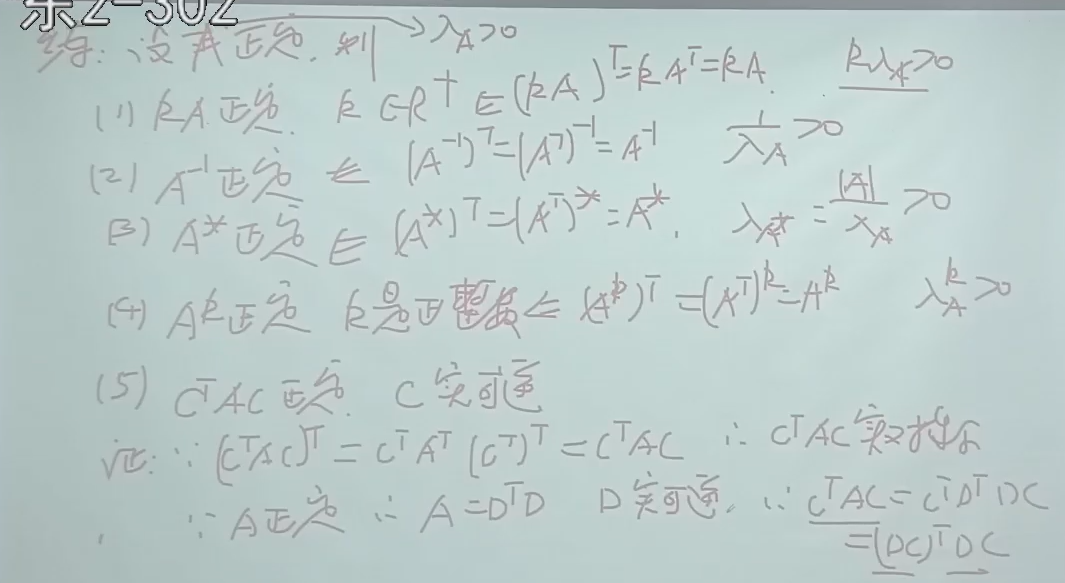 东2-302
练: 设A正定, 则 → λ_A>0
(1) kA正定. k∈R⁺ ⇐ (kA)ᵀ=kAᵀ=kA. kλ_A>0
(2) A⁻¹正定 ⇐ (A⁻¹)ᵀ=(Aᵀ)⁻¹=A⁻¹ 1/λ_A>0
(3) A*正定 ⇐ (A*)ᵀ=(Aᵀ)*=A*. λ_A*=|A|/λ_A>0
(4) Aᵏ正定 k是正整数 ⇐ (Aᵏ)ᵀ=(Aᵀ)ᵏ=Aᵏ λ_Aᵏ>0
(5) CᵀAC正定. C实可逆
证: ∵ (CᵀAC)ᵀ=CᵀAᵀ(Cᵀ)ᵀ=CᵀAC ∴ CᵀAC实对称
∵ A正定 ∴ A=DᵀD D实可逆. ∴ CᵀAC=CᵀDᵀDC
=(DC)ᵀDC